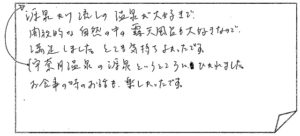 源泉かけ流しの温泉が大好きで
開放的な自然の中の露天風呂も大好きなので
満足しました とても気持ちよかったです。
宇奈月温泉の源泉というところにひかれました
お食事の時のお話も、楽しかったです。